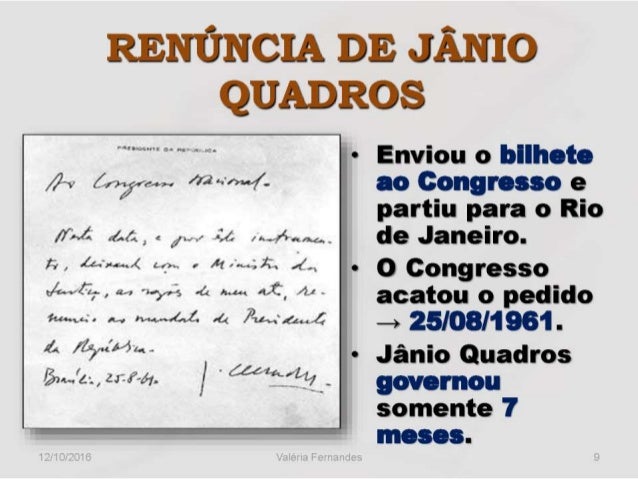 RENÚNCIA DE JÂNIO
QUADROS
PRESIDENTE DA REPÚBLICA
Ao Congresso Nacional.
Nesta data, e por êste instrumen-
to, deixando com o Ministro da
Justiça, as razões de meu ato, re-
nuncio ao mandato de Presidente
da República.
Brasília, 25-8-61.
• Enviou o bilhete
ao Congresso e
partiu para o Rio
de Janeiro.
• O Congresso
acatou o pedido
→ 25/08/1961.
• Jânio Quadros
governou
somente 7
meses.
12/10/2016
Valéria Fernandes
9